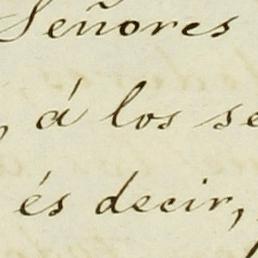 Señores
á los se
és decir,